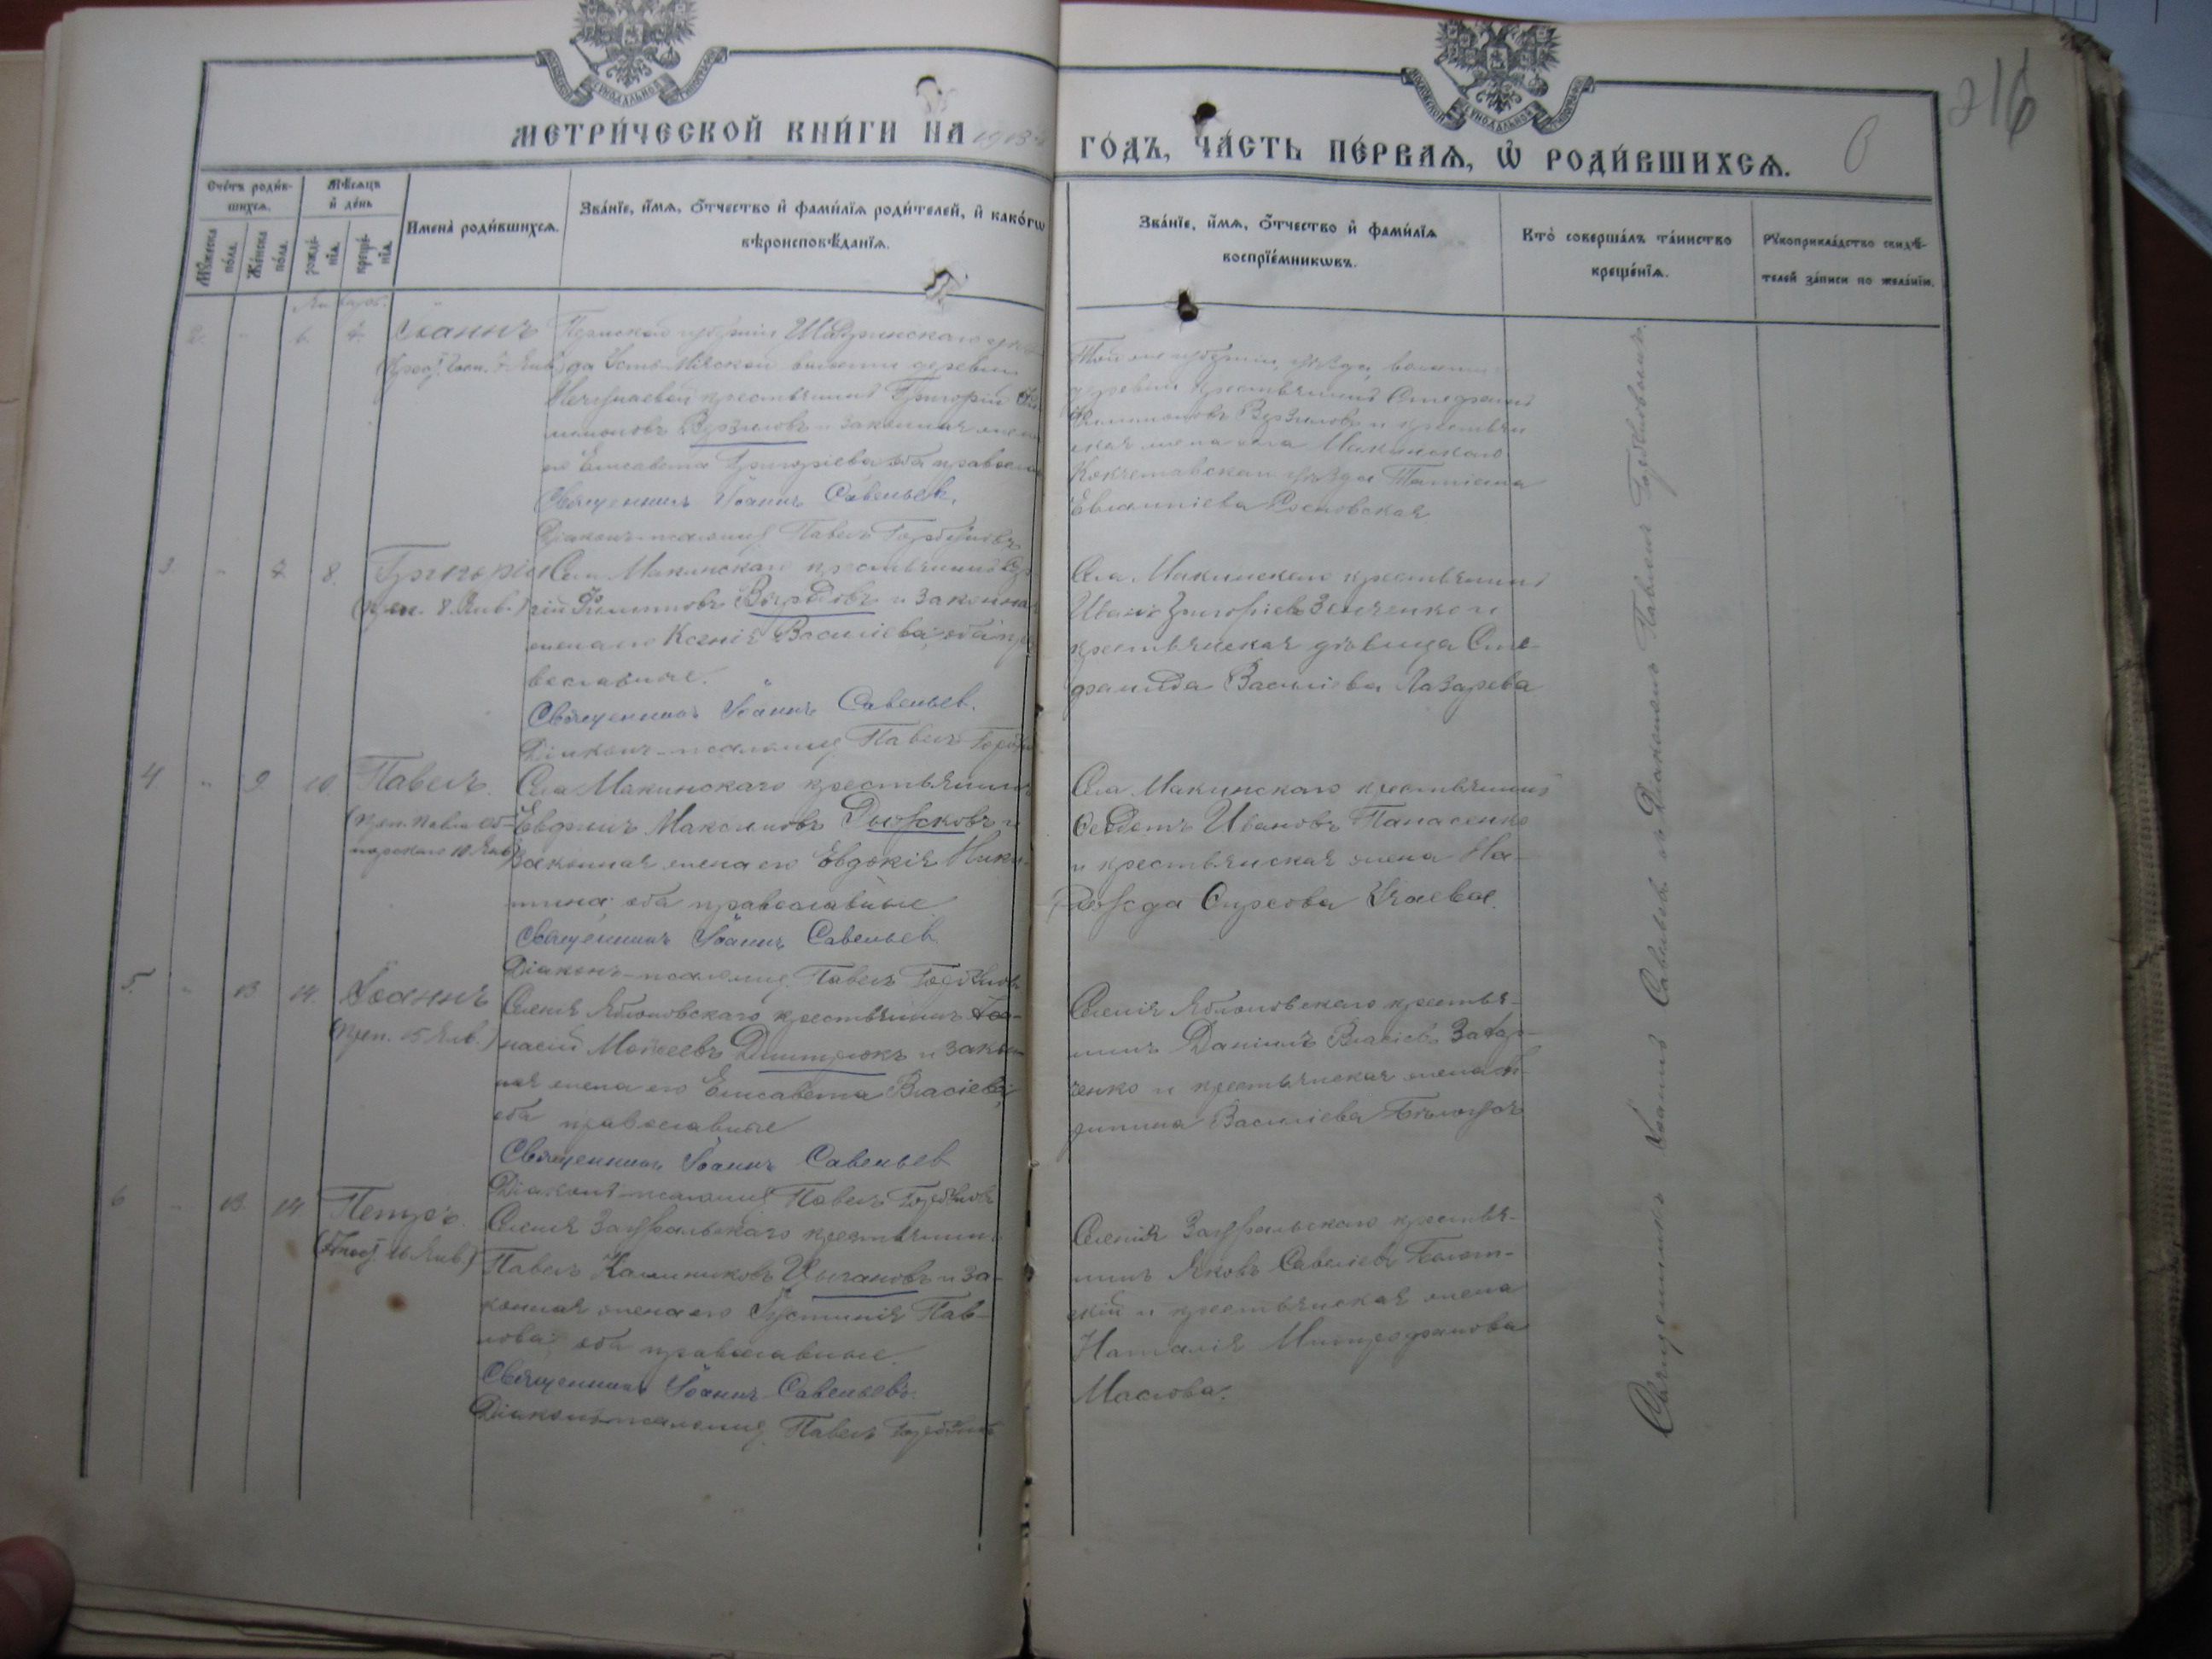 216
МЕТРИ́ЧЕСКОЙ КНИ́ГИ НА 1913
ГО́ДЪ, ЧА́СТЬ ПЕ́РВАѦ, Ѽ РОДИ́ВШИХСѦ.
Счéтъ роди́вшихсѧ.
Мꙋ́жеска пóла.
Жéнска пóла.
Мѣ́сѧцъ и҆ де́нь
рожде́нїѧ.
креще́нїѧ.
Имена̀ роди́вшихсѧ.
Зва́нїе, и҆́мѧ, ѻ҆́тчество и҆ фами́лїѧ роди́телей, и҆ како́гѡ
вѣроисповѣ́данїѧ.
Зва́нїе, и҆́мѧ, ѻ҆́тчество и҆ фами́лїѧ
воспрїе́мникѡвъ.
Кто̀ соверша́лъ та́инство
креще́нїѧ.
Рꙋкоприкла́дство свидѣ́-
телей за́писи по жела́нїю.
Январь.
2. " 6. 7.
Іоаннъ
Пермской губерніи Шадринскаго уѣз-
да Усть-Міясской волости деревни
крестьянинъ Григорій
и законная жена
его Елисавета Григоріева, оба православ
Священникъ Іоаннъ Савельевъ.
Діаконъ-псаломщ. Павелъ Горбуновъ
Той же губерніи, уѣзда, волости
деревни крестьянинъ Стефанъ
и крестьян
ская жена села Макинскаго
Кокчетавскаго уѣзда Татіана
Евлампіева
3. " 7. 8.
Григорій
(преп. 8. Янв.)
Села Макинскаго крестьянинъ
Филипповъ и законная
жена его Ксенія Василіева, оба пра
вославные.
Священникъ Іоаннъ Савельевъ.
Діаконъ-псаломщ. Павелъ
Села Макинскаго крестьянинъ
Иванъ Григоріевъ Зенченко и
крестьянская дѣвица Сте-
фанида Василіева Лазарева
4 " 9. 10.
Павелъ.
(преп. Павла Об-
норскаго 10. Янв.)
Села Макинскаго крестьянинъ
Максимовъ и
законная жена его Евдокія Ники-
тина, оба православные.
Священникъ Іоаннъ Савельевъ
Діаконъ-псаломщ. Павелъ Горбуновъ
Села Макинскаго крестьянинъ
Ѳеодотъ Ивановъ Панасенко
и крестьянская жена На-
дежда
5. " 13 14.
Іоаннъ
(преп. 15 Янв.)
Селенія Яблоновскаго крестьянинъ Аѳа-
насій Моисеевъ Дмитрюкъ и закон-
ная жена его Елисавета Власіева,
оба православные
Священникъ Іоаннъ Савельевъ
Діаконъ-псаломщ. Павелъ Горбуновъ
Селенія Яблоновскаго крестья-
нинъ Даніилъ Власіевъ Захар-
ченко и крестьянская жена
Василіева
6 " 13. 14
Петръ.
(Апост. 16 Янв.)
Селенія Зауральскаго крестьянинъ
Павелъ Калинниковъ Цыгановъ и за-
конная жена его Іустинія Пав-
лова, оба православные.
Священникъ Іоаннъ Савельевъ.
Діаконъ-псаломщ. Павелъ Горбуновъ
Селенія Зауральскаго крестья-
нинъ Яковъ Савеліевъ
и крестьянская жена
Наталія Митрофанова
Маслова.
Священникъ Іоаннъ Савельевъ съ Діакономъ Павломъ Горбуновымъ.